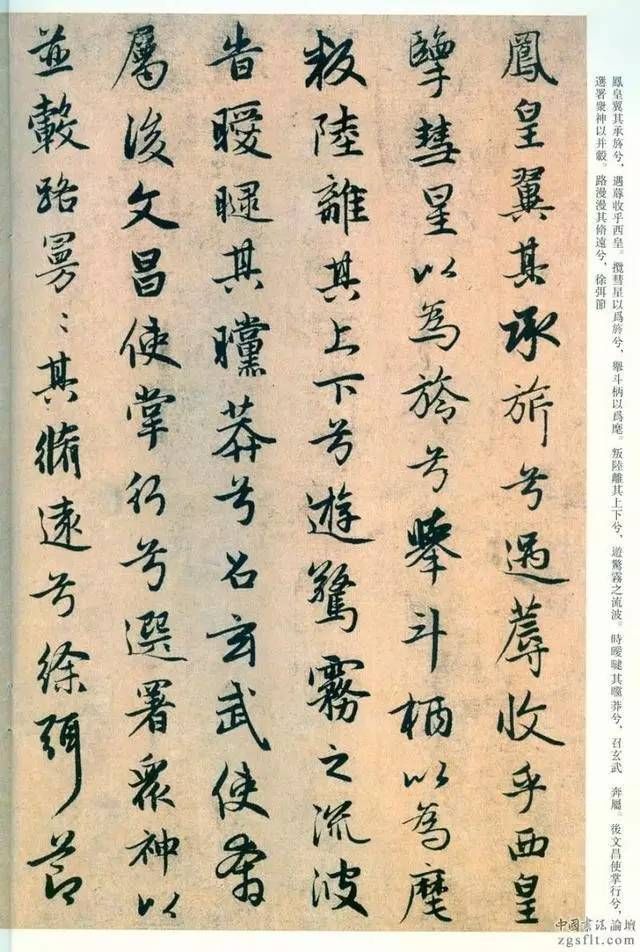 鳳皇翼其承旂兮，遇蓐收乎西皇。攬彗星以爲旍兮，舉斗柄以爲麾。叛陸離其上下兮，遊驚霧之流波。時曖曃其曭莽兮，召玄武　奔屬。後文昌使掌行兮，
選署衆神以并轂。路漫漫其脩遠兮，徐弭節
鳳皇翼其承旂兮遇蓐收乎西皇
擥彗星以為旍兮舉斗柄以為麾
叛陸離其上下兮遊驚霧之流波
旹曖曃其曭莽兮召玄武使奔
屬後文昌使掌行兮選署衆神以
並轂路曼〻其脩遠兮徐弭節
中國書法論壇
zgsflt.com